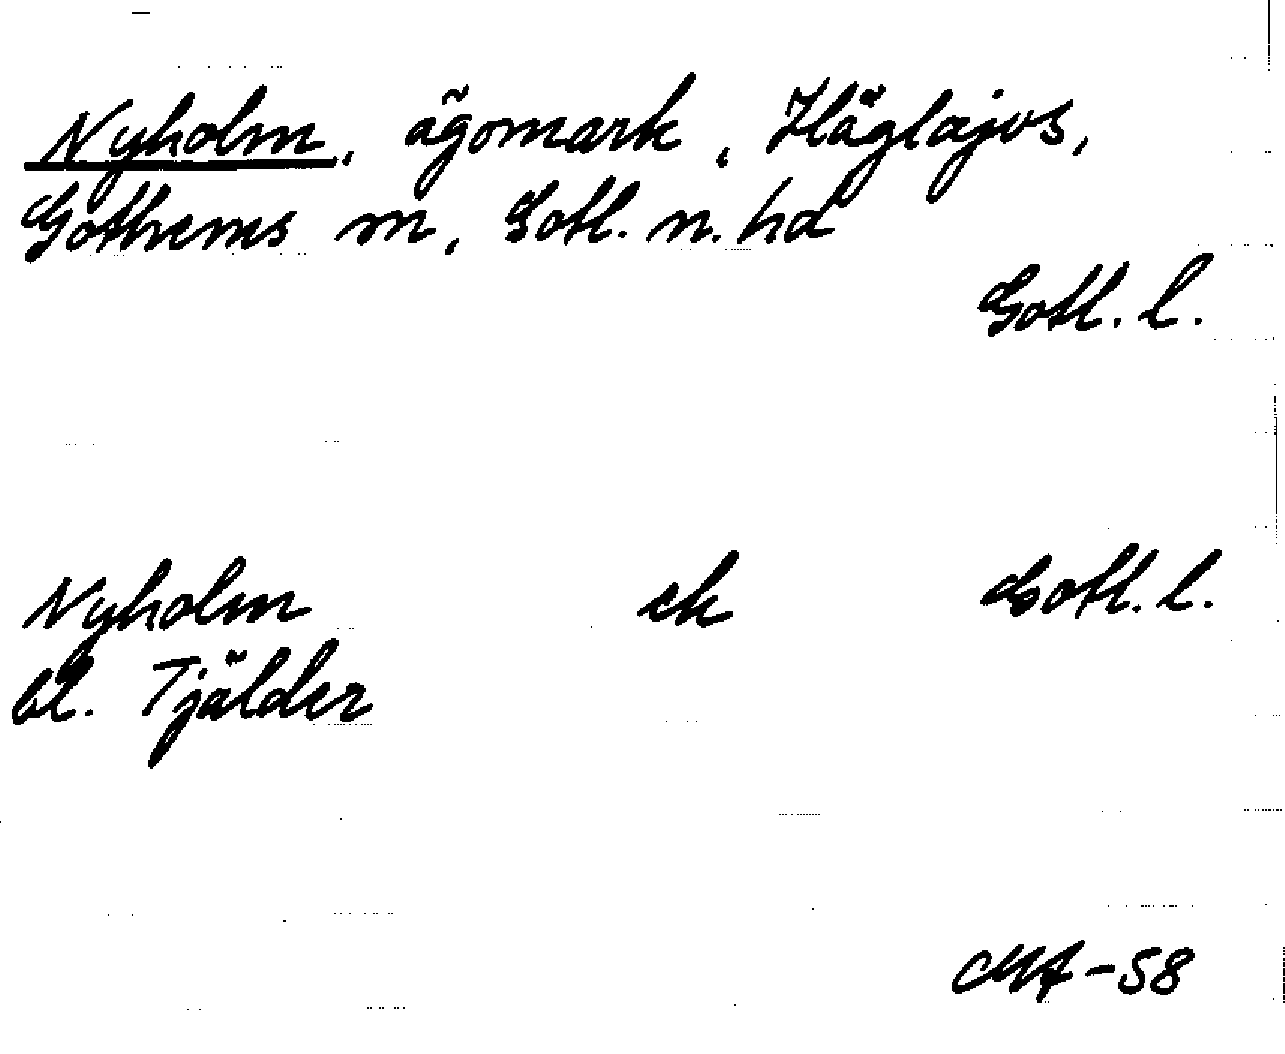 Nyholm, ägomark, Häglajvs,
Gothems m, Gotl. n. hd
Gotl. l.
Nyholm ek Gotl. l.
bl. Tjälder
MA-58